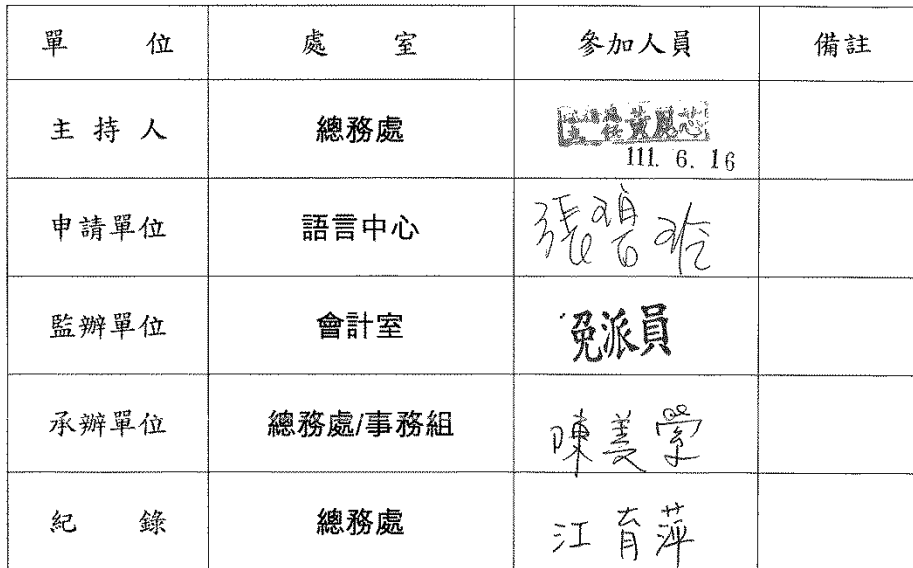 單位 處室 參加人員 備註
主持人 總務處 主任黃
111. 6. 16
申請單位 語言中心 張碧玲
監辦單位 會計室 免派員
承辦單位 總務處/事務組 陳美瑩
紀錄 總務處 江育萍